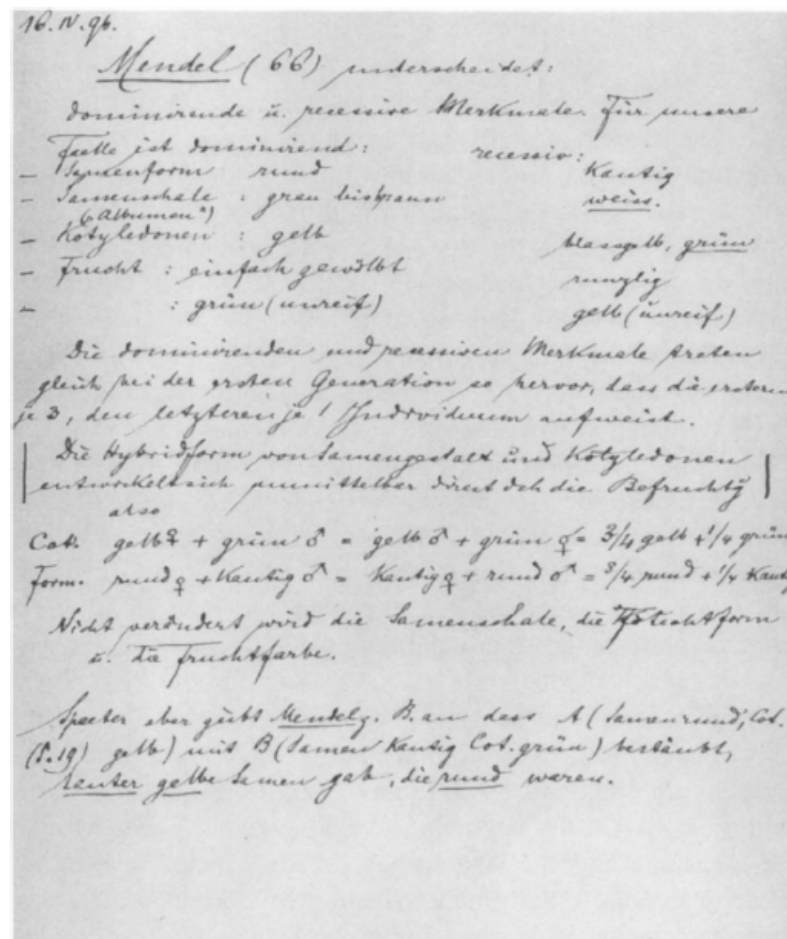 16. IV. 96.
Mendel (66) unterscheidet:
dominirende u. recessive Merkmale. Für unsere
Faelle ist dominirend: recessiv:
– Samenform rund Kantig
– Samenschale : grau bis braun weiss.
("Albumen")
– Kotyledonen : gelb blassgelb, grün
– Frucht : einfach gewölbt runzlig
– : grün (unreif) gelb (unreif)
Die dominirenden und recessiven Merkmale treten
gleich bei der ersten Generation so hervor, dass die ersteren
je 3, den letzteren je 1 Individuum aufweist.
Die Hybridform von Samengestalt und Kotyledonen
entwickelt sich unmittelbar direct dch die Befruchtg
also
Cot. gelb ♀ + grün ♂ = gelb ♂ + grün ♀ = 3/4 gelb + 1/4 grün
Form. rund ♀ + Kantig ♂ = Kantig ♀ + rund ♂ = 3/4 rund + 1/4 Kantig
Nicht verändert wird die Samenschale, die Fruchtform
u. die Fruchtfarbe.
Spaeter aber giebt Mendel z. B. an dass A (Samen rund, Cot.
(S. 19) gelb) mit B (Samen Kantig Cot. grün) bestäubt,
lauter gelbe Samen gab, die rund waren.